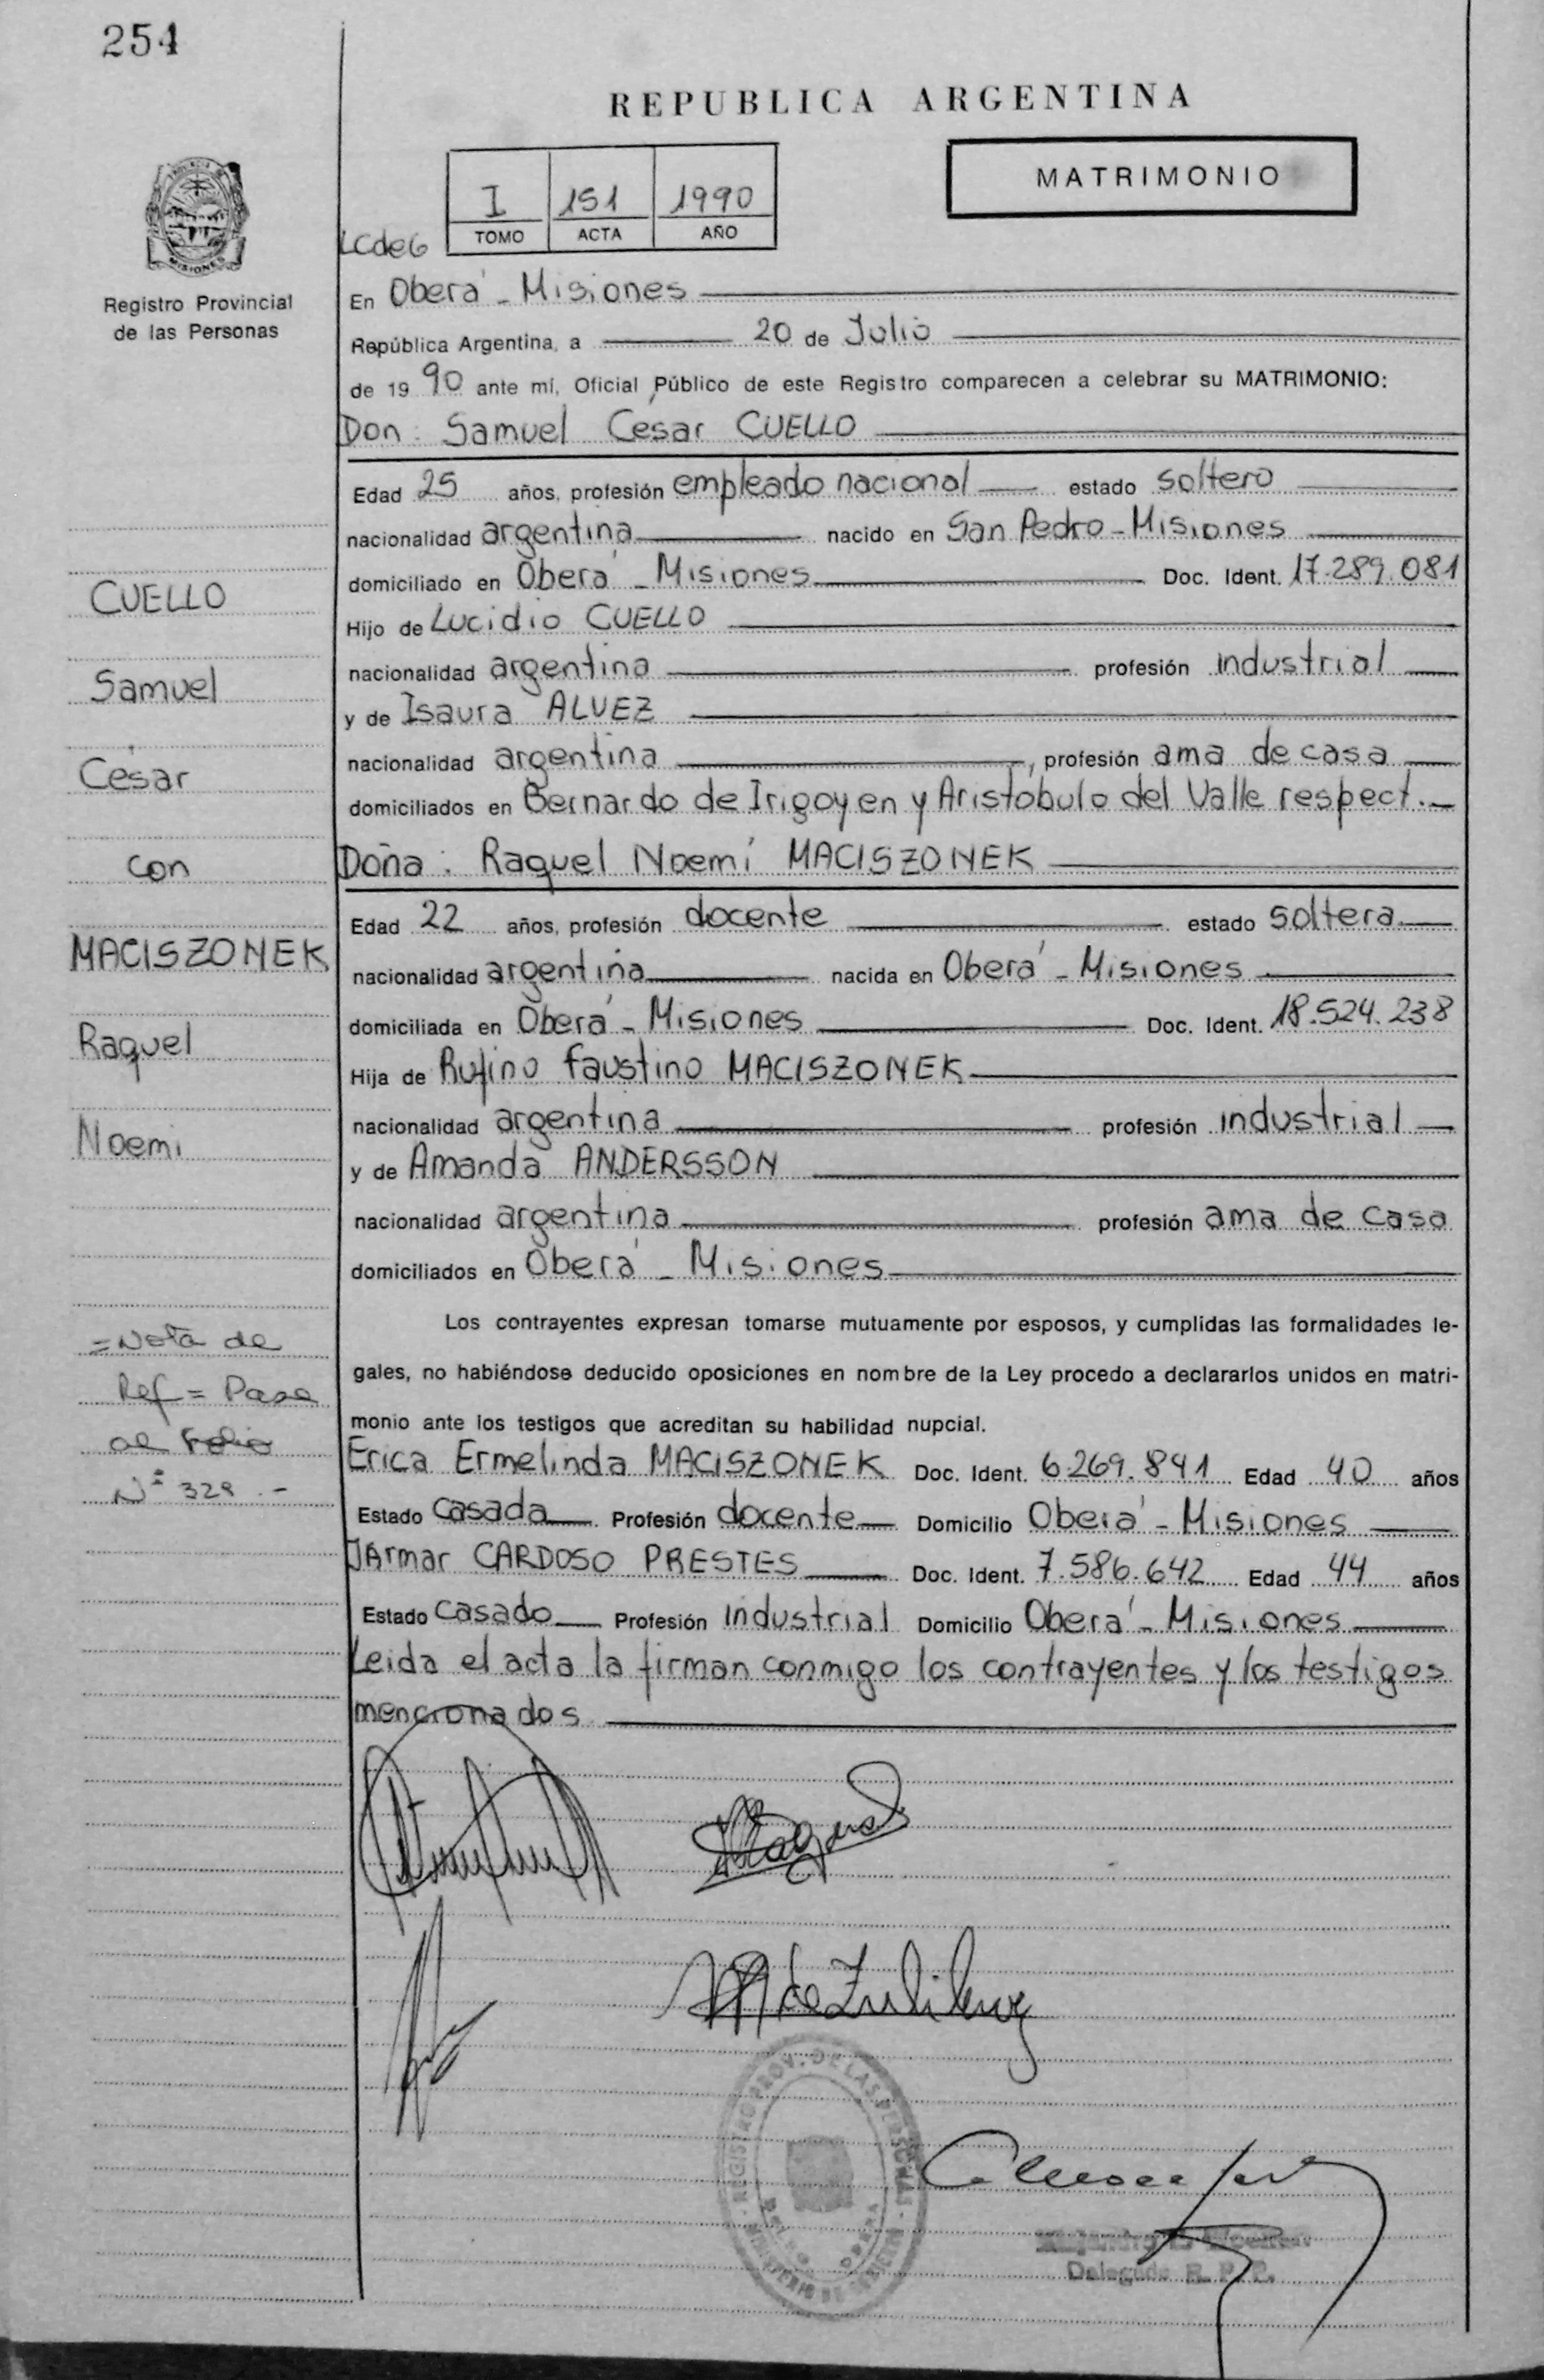 254
REPUBLICA ARGENTINA
MATRIMONIO
I 151 1990
TOMO ACTA AÑO
LCdeG
MISIONES
Registro Provincial
de las Personas
En Oberá - Misiones
República Argentina, a 20 de Julio
de 19 90 ante mí, Oficial Público de este Registro comparecen a celebrar su MATRIMONIO:
Don: Samuel César CUELLO
Edad 25 años, profesión empleado nacional estado soltero
nacionalidad argentina nacido en San Pedro - Misiones
domiciliado en Oberá - Misiones Doc. Ident. 17.289.081
Hijo de Lucidio CUELLO
nacionalidad argentina profesión industrial
y de Isaura ALVEZ
nacionalidad argentina, profesión ama de casa
domiciliados en Bernardo de Irigoyen y Aristobulo del Valle respect.
Doña: Raquel Noemí MACISZONEK
Edad 22 años, profesión docente estado soltera
nacionalidad argentina nacida en Oberá - Misiones
domiciliada en Oberá - Misiones Doc. Ident. 18.524.238
Hija de Rufino Faustino MACISZONEK
nacionalidad argentina profesión industrial
y de Amanda ANDERSSON
nacionalidad argentina profesión ama de casa
domiciliados en Oberá - Misiones
Los contrayentes expresan tomarse mutuamente por esposos, y cumplidas las formalidades le-
gales, no habiéndose deducido oposiciones en nombre de la Ley procedo a declararlos unidos en matri-
monio ante los testigos que acreditan su habilidad nupcial.
Erica Ermelinda MACISZONEK Doc. Ident. 6.269.891 Edad 40 años
Estado casada Profesión docente Domicilio Oberá - Misiones
JArmar CARDOSO PRESTES Doc. Ident. 7.586.642 Edad 44 años
Estado casado Profesión industrial Domicilio Oberá - Misiones
Leida el acta la firman conmigo los contrayentes y los testigos
mencionados
CUELLO
Samuel
César
con
MACISZONEK
Raquel
Noemi
= Nota de
Ref = Pase
al Folio
Nº 329 .-
Raquel
REGISTRO PROV. DE LAS PERSONAS
Delegado R. P. P.